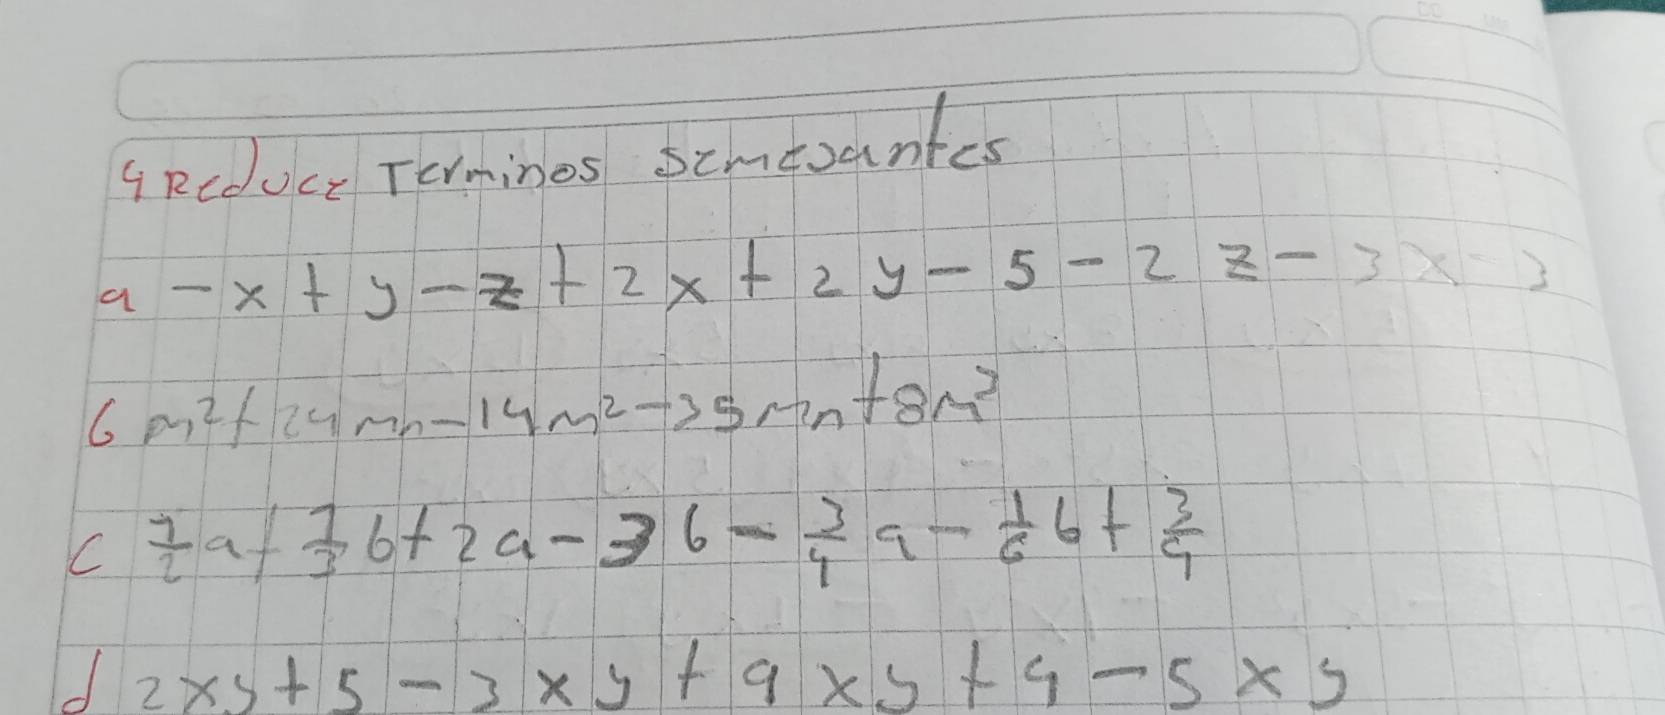 4 Reduce Terminos Semejantes
a - x + y - z + 2x + 2y - 5 - 2z - 3x - 3
b m² + 24mn - 14m² - 35mn + 8m²
c 1/2 a + 1/3 b + 2a - 3b - 3/4 a - 1/6 b + 3/4
d 2xy + 5 - 3xy + 9xy + 4 - 5xy